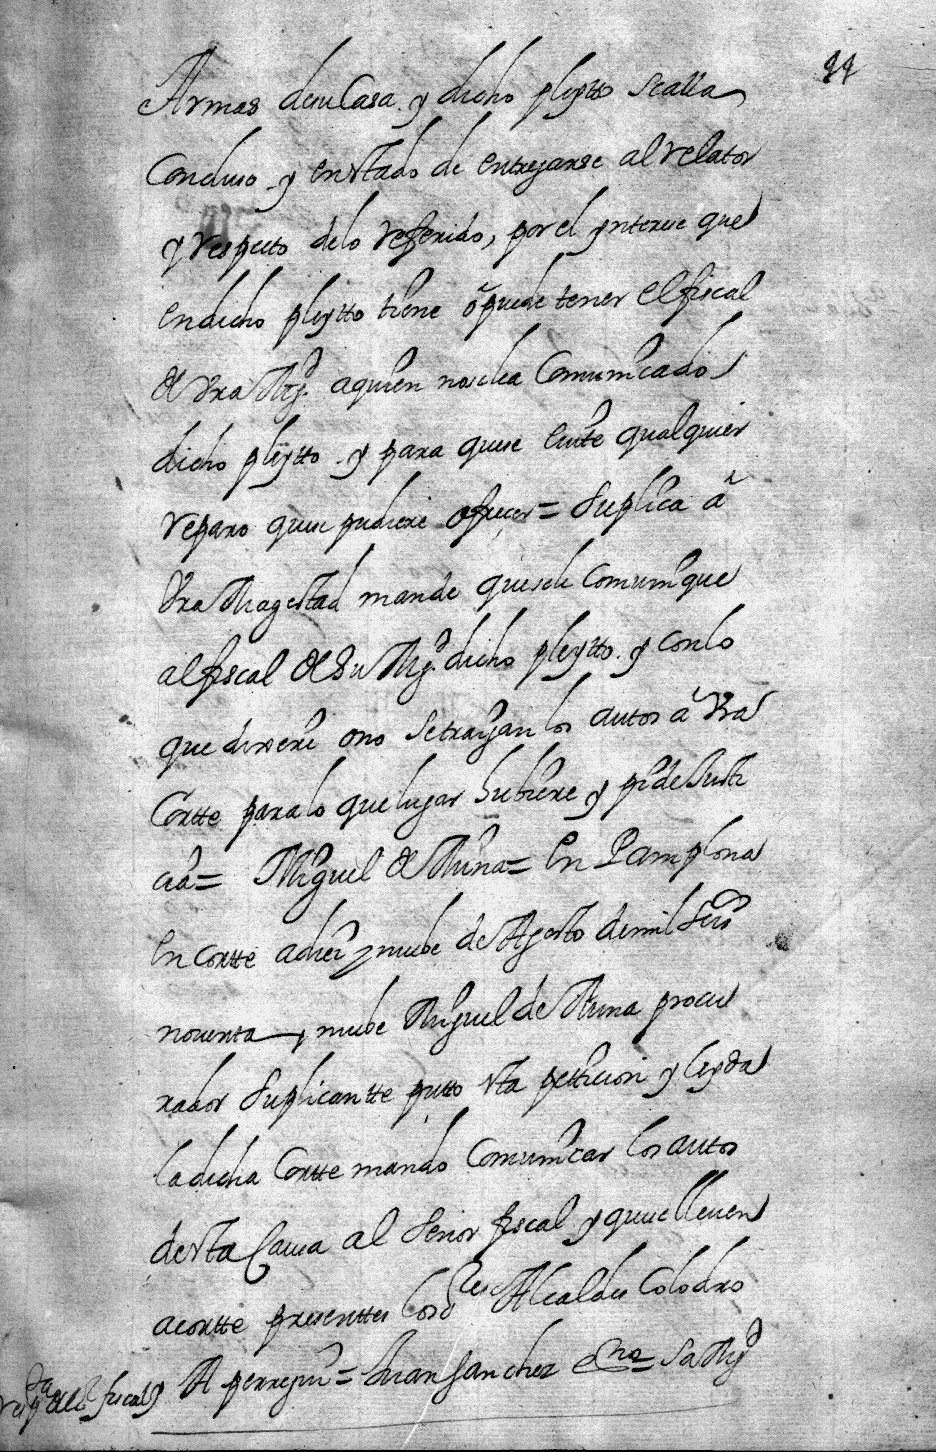 44
Armas desu Casa. y dicho pleytto sealla
Concluso y enestado de entregarse al relator
y respecto delo referido, por el ynterese que
endicho pleytto tiene o puede tener el fiscal
de Vra Mgd. aquien nosele a Comunicado
dicho pleytto. y para quese evite qualquier
reparo quese pudiere ofrecer = Suplica a
Vra Magestad mande quesele comunique
al fiscal de Su Mgd. dicho pleytto. y conlo
que dixere ono setraygan los autos a Vra
Cortte paralo que lugar hubiere y pide Justi
cia = Miguel de Muna = En Pamplona
en cortte adiez y nuebe de Agosto demil Seis
nouenta y nuebe Miguel de Muna procu
rador Suplicantte pntto esta peticion y leyda
la dicha Cortte mando Comunicar los autos
desta Caussa al Señor fiscal y quese lleuen
acortte presenttes los Sres Alcaldes Colodro
Juan Sanchez Esno = Sa Mgd
fiscal